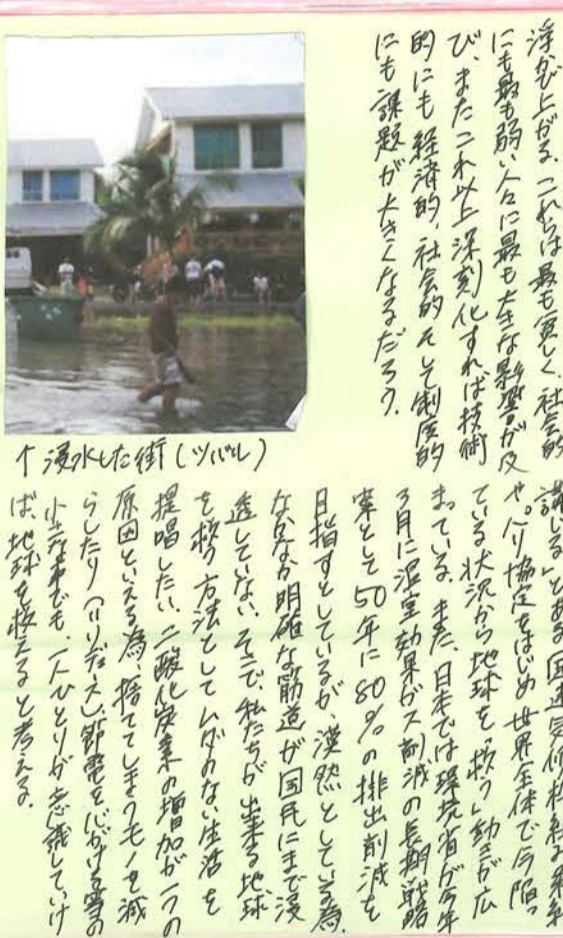 浮かび上がる。これらは最も貧しく、社会的
にも最も弱い人々に最も大きな影響が及
び、またこれ以上深刻化すれば技術
的にも経済的、社会的そして制度的
にも課題が大きくなるだろう。
↑浸水した街(ツバル)
講じる」とある国連気候枠組み条約
や、パリ協定をはじめ世界全体で今陥っ
ている状況から地球を"救う"動きが広
まっている。また、日本では環境省が今年
3月に温室効果ガス削減の長期戦略
案として50年に80%の排出削減を
目指すとしているが、漠然としている為、
なかなか明確な筋道が国民にまで浸
透していない。そこで、私たちが出来る地球
を救う方法としてムダのない生活を
提唱したい。二酸化炭素の増加が一つの
原因といえる為、捨ててしまうモノを減
らしたり(リデュース)、節電を心がける等の
小さな事でも、一人ひとりが意識していけ
ば、地球を救えると考える。